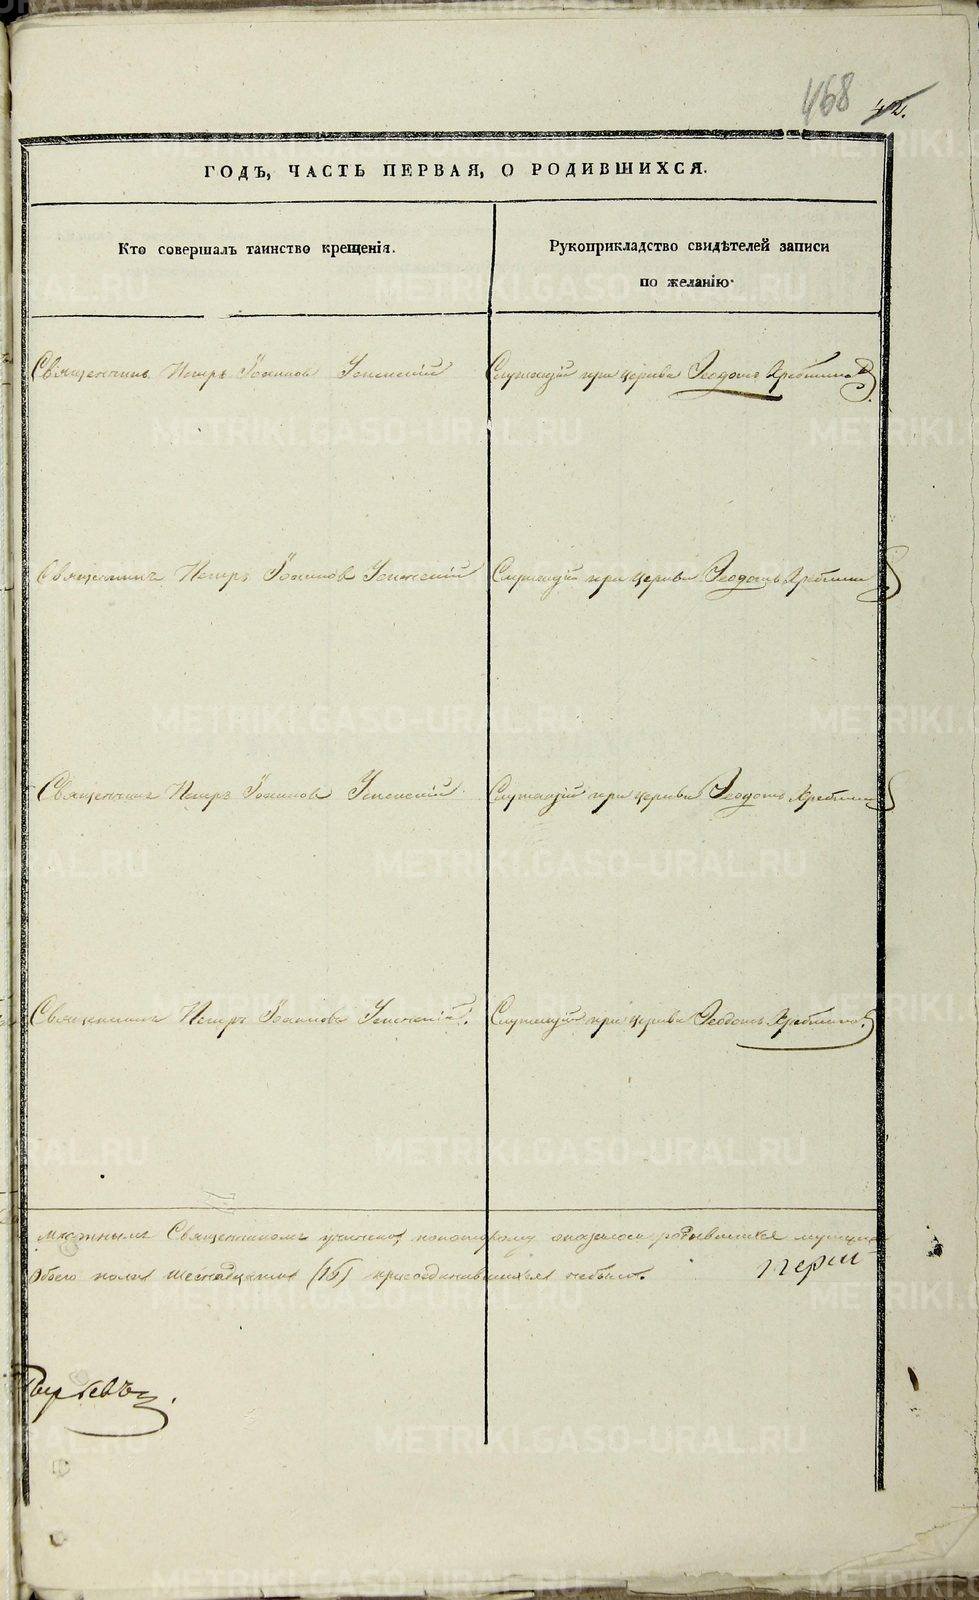 468 42.
ГОДЪ, ЧАСТЬ ПЕРВАЯ, О РОДИВШИХСЯ.
Кто совершалъ таинство крещенія.
Рукоприкладство свидѣтелей записи
по желанію.
Священникъ Петръ Іоанновъ Успенскій
Служащій при церкви Ѳеодотъ
Священникъ Петръ Іоанновъ Успенскій
Служащій при церкви Ѳеодотъ
Священникъ Петръ Іоанновъ Успенскій
Служащій при церкви Ѳеодотъ
Священникъ Петръ Іоанновъ Успенскій.
Служащій при церкви Ѳеодотъ
Священникомъ оказалось родившихся
обоего пола шеснадцать (16) присоединившихся небыло.
METRIKI.GASO-URAL.RU